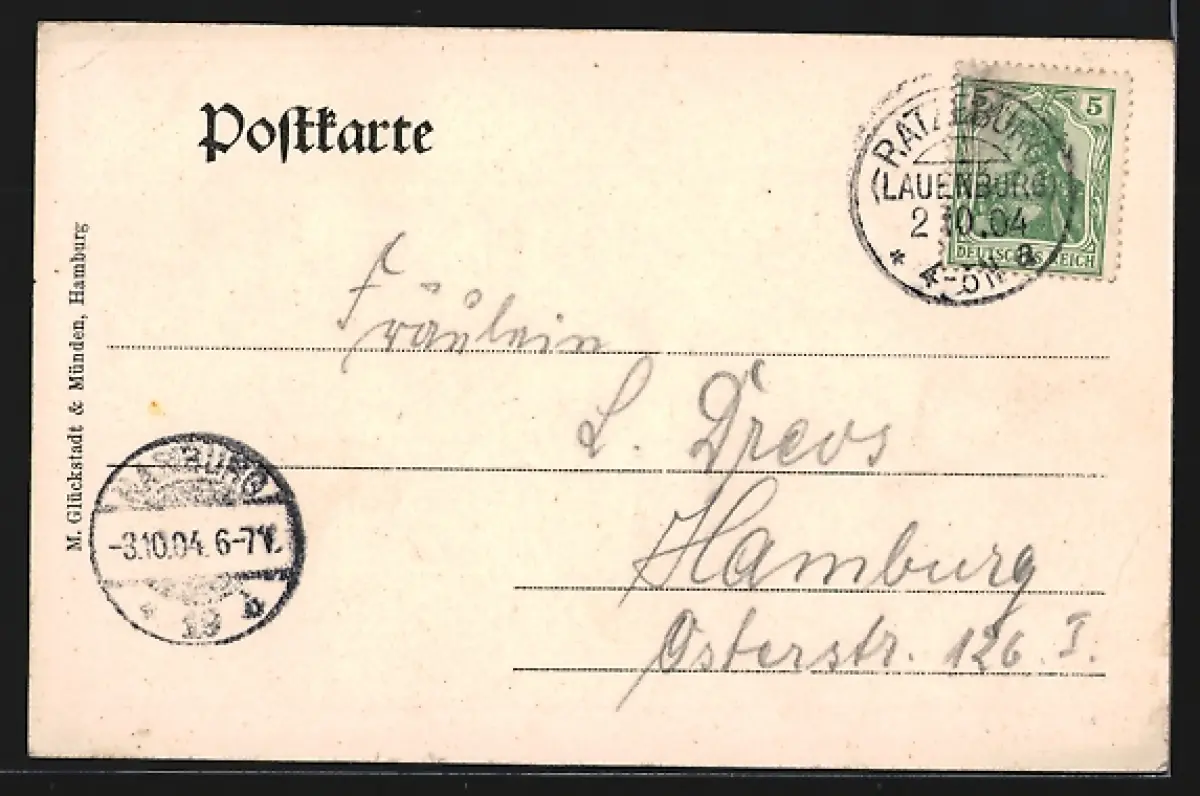 Postkarte
5
RATZEBURG
(LAUENBURG)
2 10.04
* 4-5 N a
DEUTSCHES REICH
M. Glückstadt & Münden, Hamburg
Fräulein
L. Drevs
Hamburg
Osterstr. 126. I.
HAMBURG
-3.10.04. 6-7 V.
* 19 b